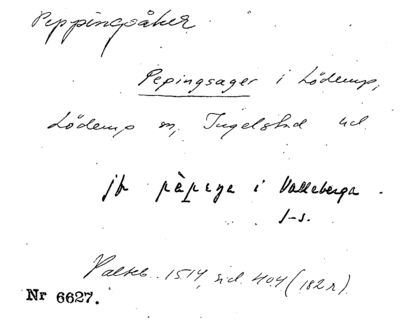 Peppingsåker
Pepingsager i Löderup,
Löderup sn, Ingelstad hd.
jfr i Valleberga.
s-n.
1514, sid. 404 (182 r).
Nr 6627.